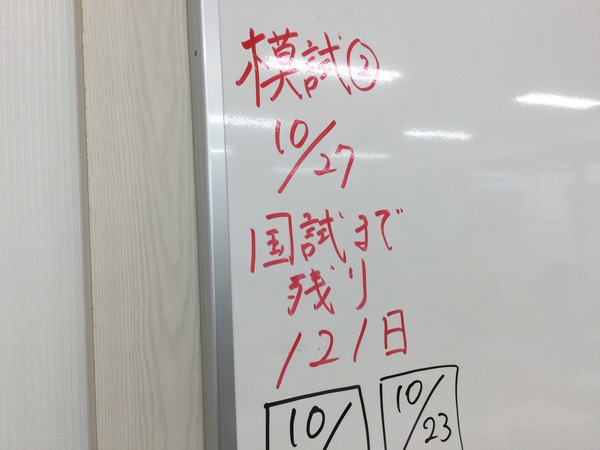 模試②
10/27
国試まで
残り
121日
10/
10/23